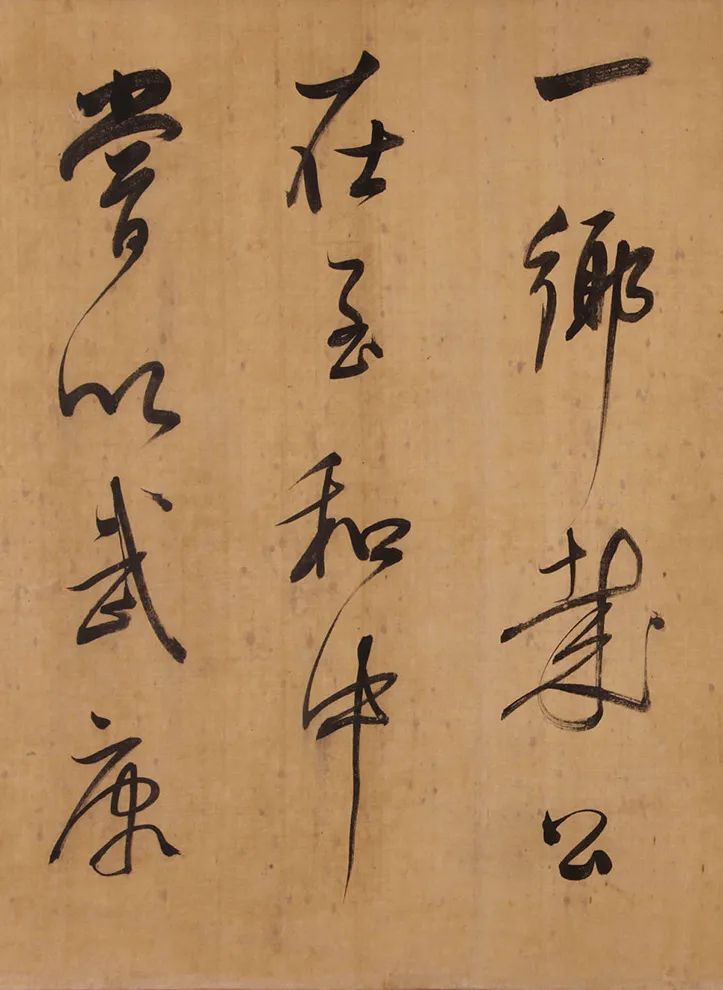 一鄉哉公
在至和中
嘗以武康